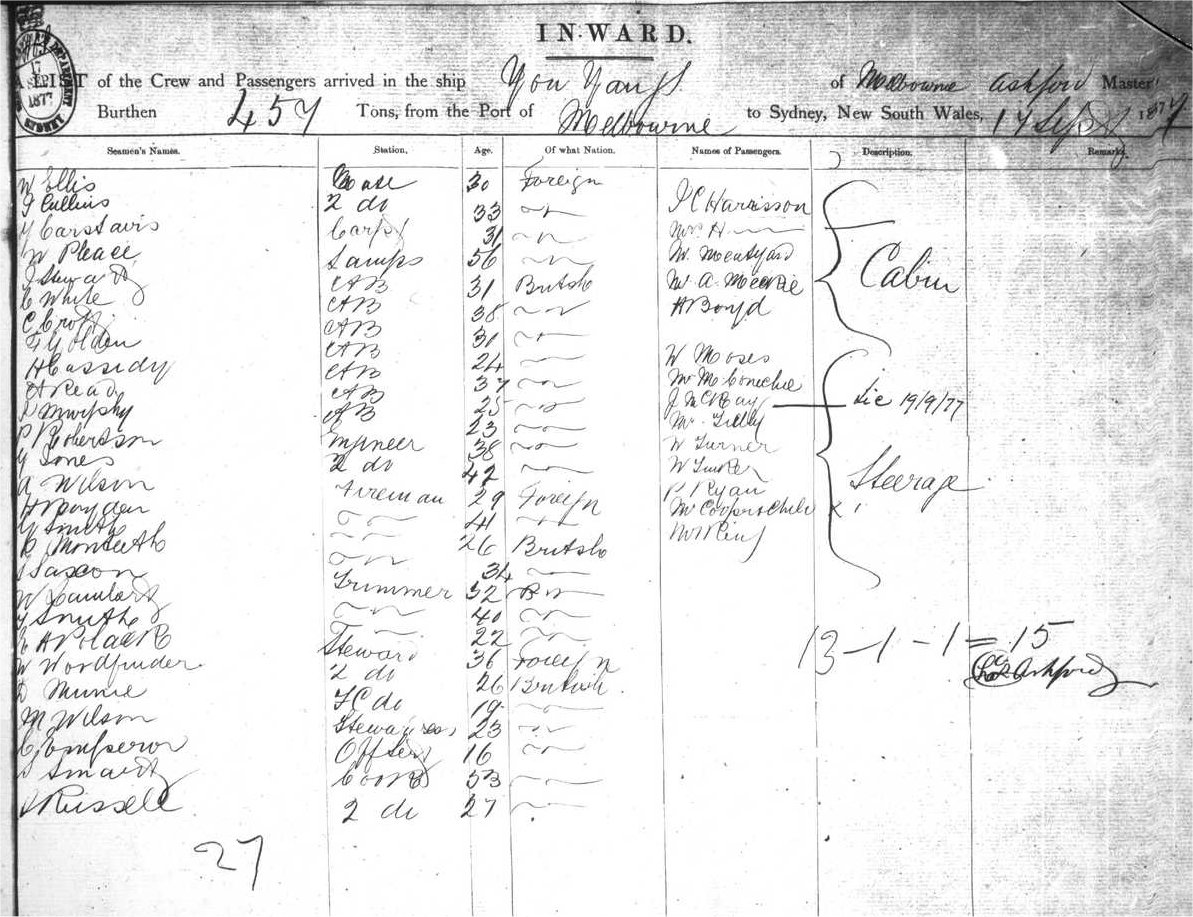 INWARD.
A LIST of the Crew and Passengers arrived in the ship You Yangs of Melbourne Ashford Master
Burthen 457 Tons, from the Port of Melbourne to Sydney, New South Wales, 17 Sept 1877
Seamen's Names. Station. Age. Of what Nation. Names of Passengers. Description. Remarks.
W Ellis Mate 30 Foreign
J Cullins 2 do 33
Carstairs Carp 31
W Please Lamps 56
J Stewart AB 31 British
C White AB 38
C AB 30
Golden AB 24
H Cassidy AB 37
A Read AB 25
Murphy AB 23
P Robertson Engineer 38
Jones 2 do 42
A Wilson Fireman 29 Foreign
H Boyden 41
Smith 26 British
Monteith 34
Saxon Trimmer 32
W 40
Smith 22
A Polack Steward 36 Foreign
W Woodfinder 2 do 26 British
Munie FC do 19
M Wilson Stewardess 23
C Emperor 16
Smart Cook 53
Russell 2 do 27
27
J C Harrisson
Mrs H
Mr Meatyard
Mr A McKie
H Boyd
Cabin
W Moses
Mr McConechie
J McKay Lic 19/9/77
Mr Tilly
W Turner
W
P Ryan
Mr Cooper & Child
Mr King
Steerage
13 - 1 - 1 = 15
Chas Ashford